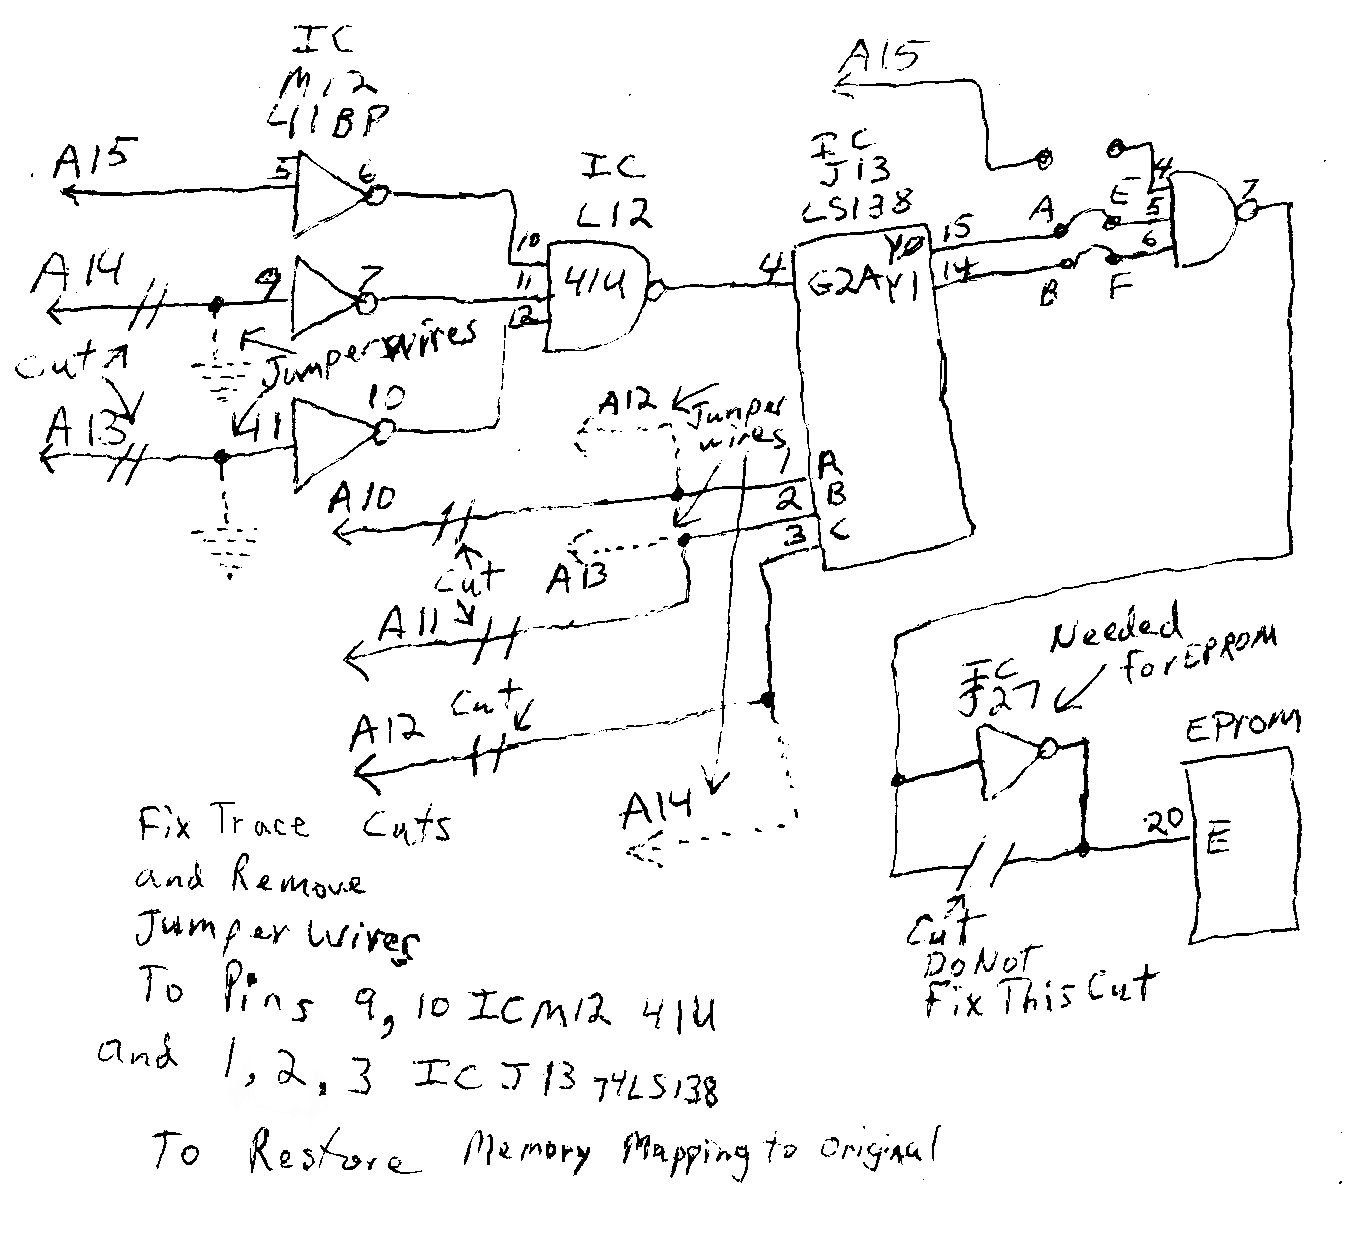 IC
M12
41BP
A15
5
6
A14
9
7
Cut
Jumper wires
A13
41
10
IC
L12
10
11
12
41U
A15
IC
J13
LS138
4
G2A
Y0
Y1
15
14
A
B
E
F
4
5
6
7
A12
Jumper
wires
A10
1
2
3
A
B
C
Cut
A13
A11
Cut
A12
A14
Needed
for EPROM
IC
J27
EProm
20
E
Cut
Do Not
Fix This Cut
Fix Trace Cuts
and Remove
Jumper Wires
To Pins 9, 10 IC M12 41U
and 1, 2, 3 IC J13 74LS138
To Restore Memory Mapping to Original